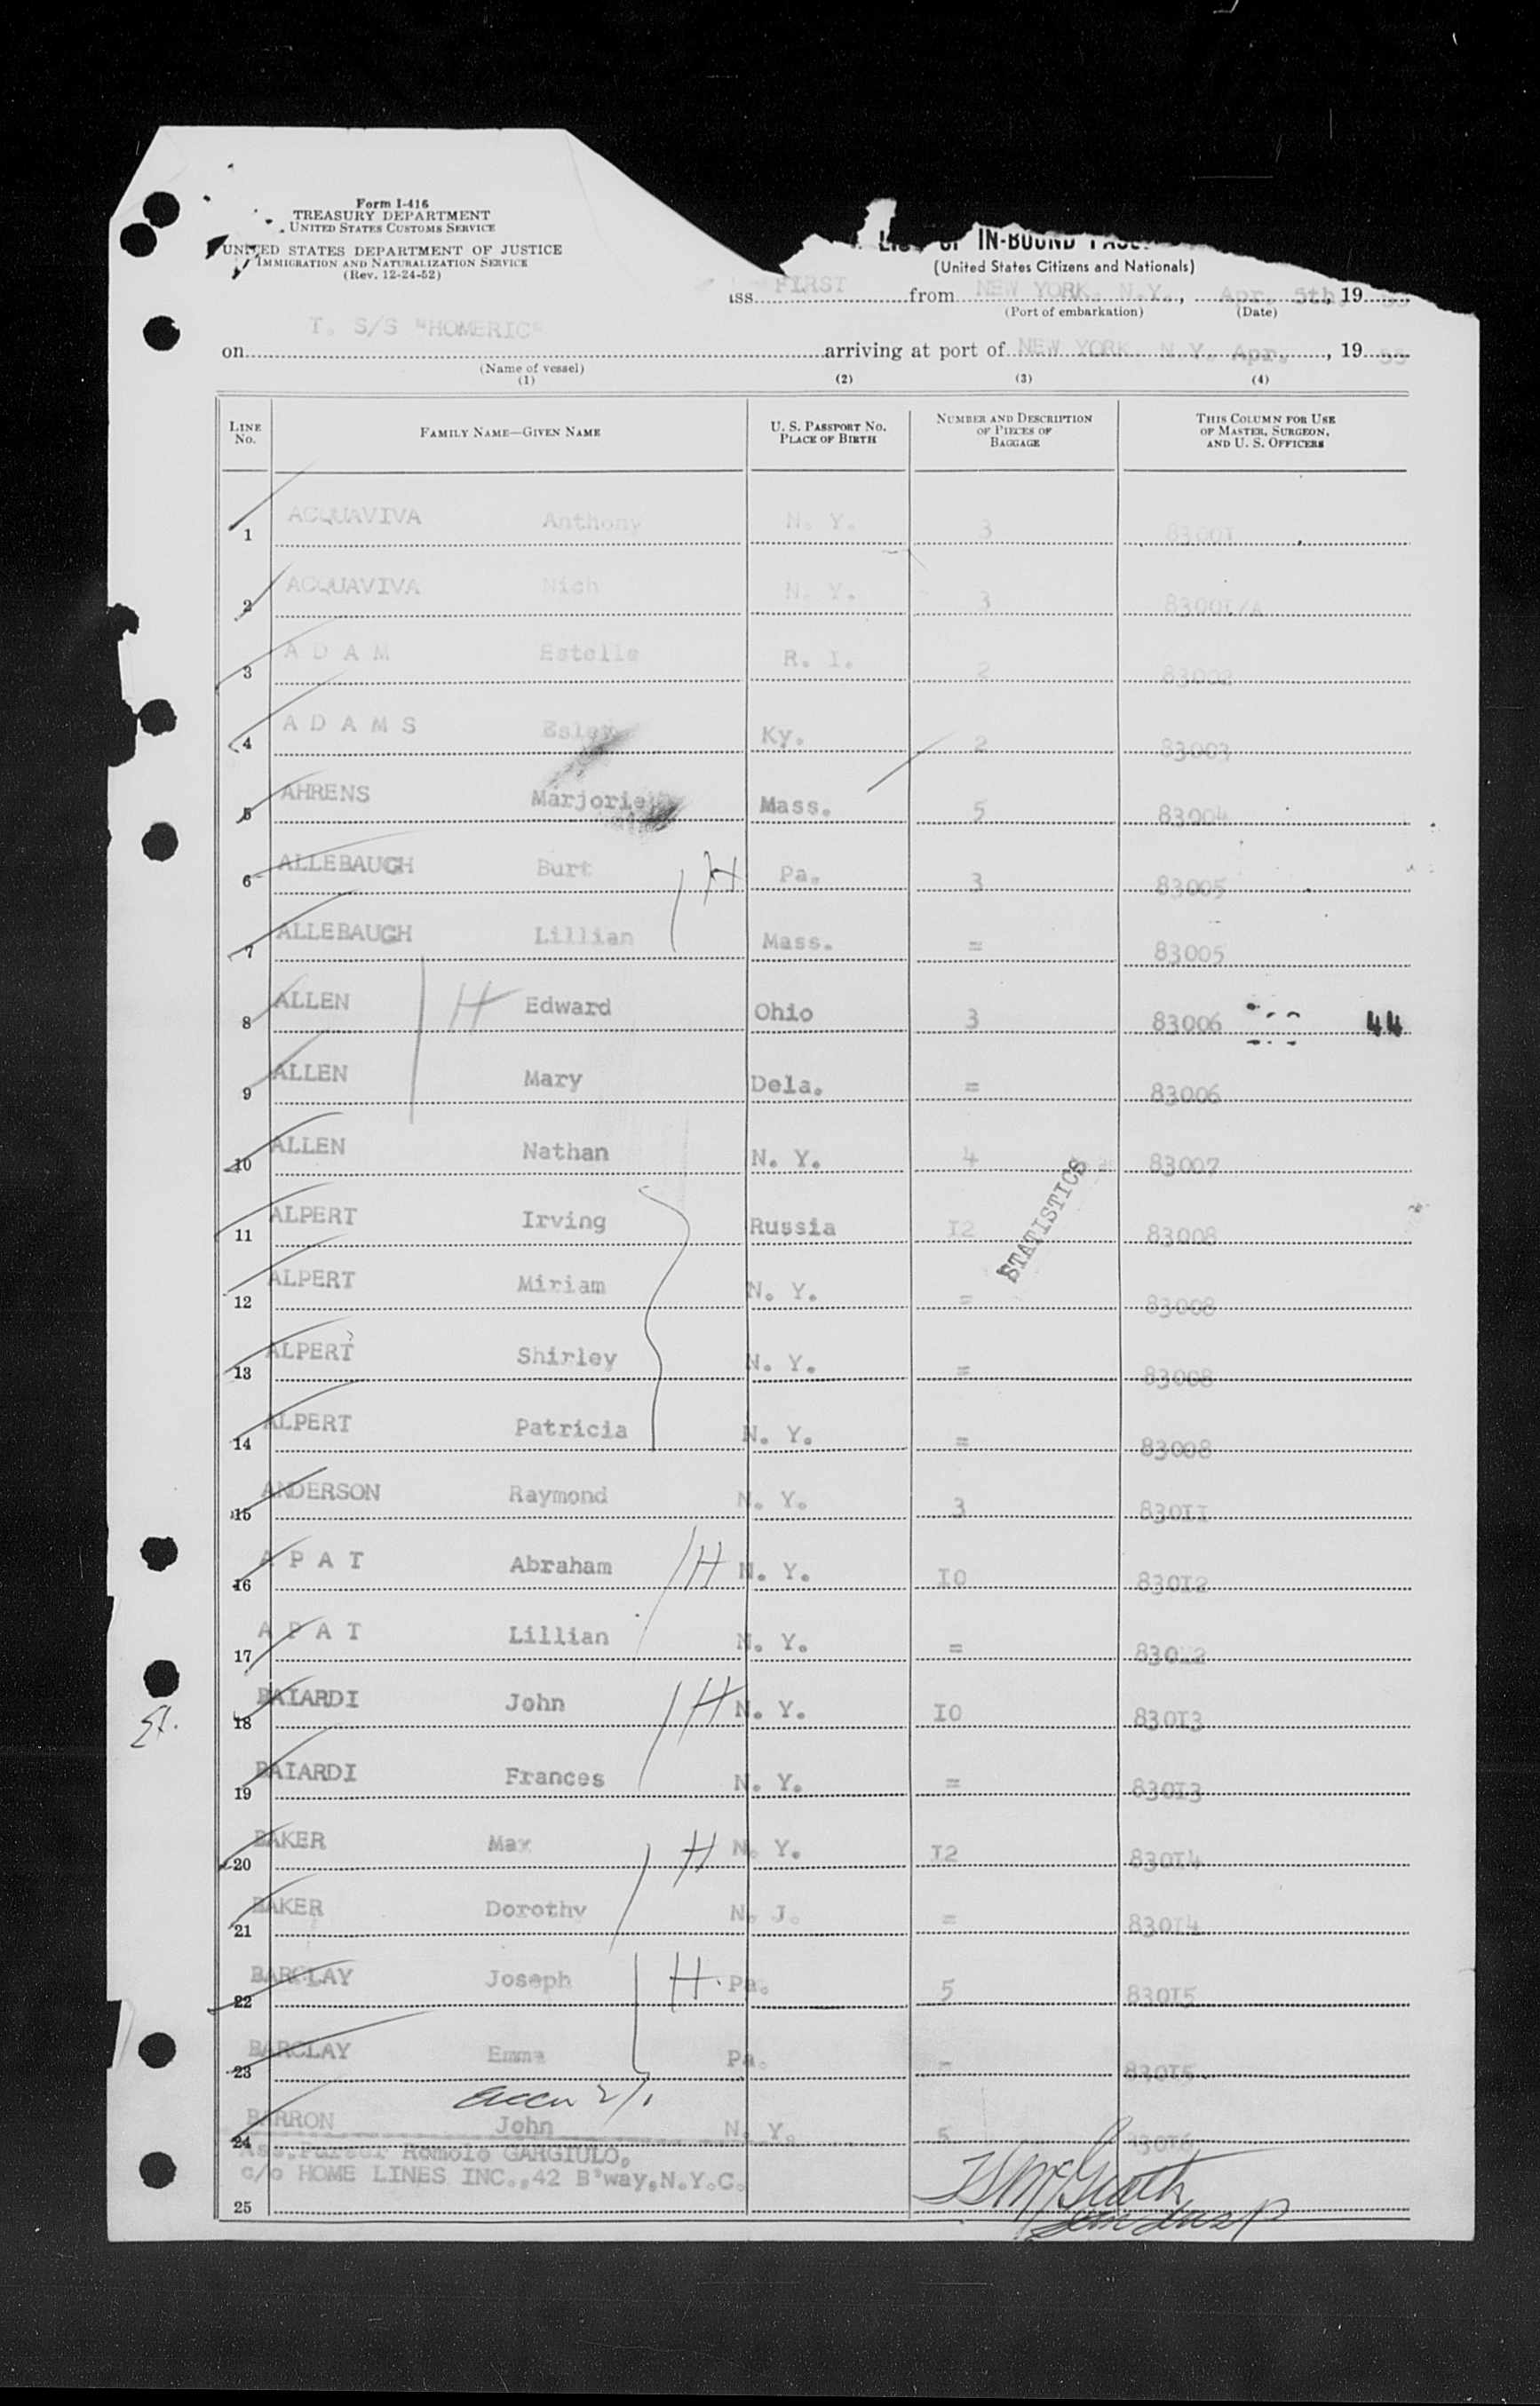 Form I-416
TREASURY DEPARTMENT
UNITED STATES CUSTOMS SERVICE
UNITED STATES DEPARTMENT OF JUSTICE
IMMIGRATION AND NATURALIZATION SERVICE
(Rev. 12-24-52)
IN-BOUND
(United States Citizens and Nationals)
ass FIRST from NEW YORK, N.Y., Apr. 5th, 1955
(Port of embarkation) (Date)
T. S/S "HOMERIC"
on arriving at port of NEW YORK, N.Y. Apr. , 1955
(Name of vessel)
(1) (2) (3) (4)
LINE NO. FAMILY NAME—GIVEN NAME U. S. PASSPORT NO. PLACE OF BIRTH NUMBER AND DESCRIPTION OF PIECES OF BAGGAGE THIS COLUMN FOR USE OF MASTER, SURGEON, AND U. S. OFFICERS
1 ACQUAVIVA Anthony N. Y. 3 83001
2 ACQUAVIVA Nich N. Y. 3 83001/A
3 A D A M Estelle R. I. 2 83002
4 A D A M S Ky. 2 83003
5 AHRENS Marjorie Mass. 5 83004
6 ALLEBAUGH Burt H Pa. 3 83005
7 ALLEBAUGH Lillian Mass. = 83005
8 ALLEN H Edward Ohio 3 83006 44
9 ALLEN Mary Dela. = 83006
10 ALLEN Nathan N. Y. 4 83007
STATISTICS
11 ALPERT Irving Russia I2 83008
12 ALPERT Miriam N. Y. = 83008
13 ALPERT Shirley N. Y. = 83008
14 ALPERT Patricia N. Y. = 83008
15 ANDERSON Raymond N. Y. 3 830II
16 A P A T Abraham H N. Y. IO 830I2
17 A P A T Lillian N. Y. = 830I2
18 BAIARDI John H N. Y. IO 830I3
19 BAIARDI Frances N. Y. = 830I3
20 BAKER Max H N. Y. I2 830I4
21 BAKER Dorothy N. J. = 830I4
22 BARCLAY Joseph H Pa. 5 830I5
23 BARCLAY Emma Pa. = 830I5
24 BARRON John N. Y. 5 830I6
Ass.Purser Romolo GARGIULO,
c/o HOME LINES INC.,42 B'way,N.Y.C.
25